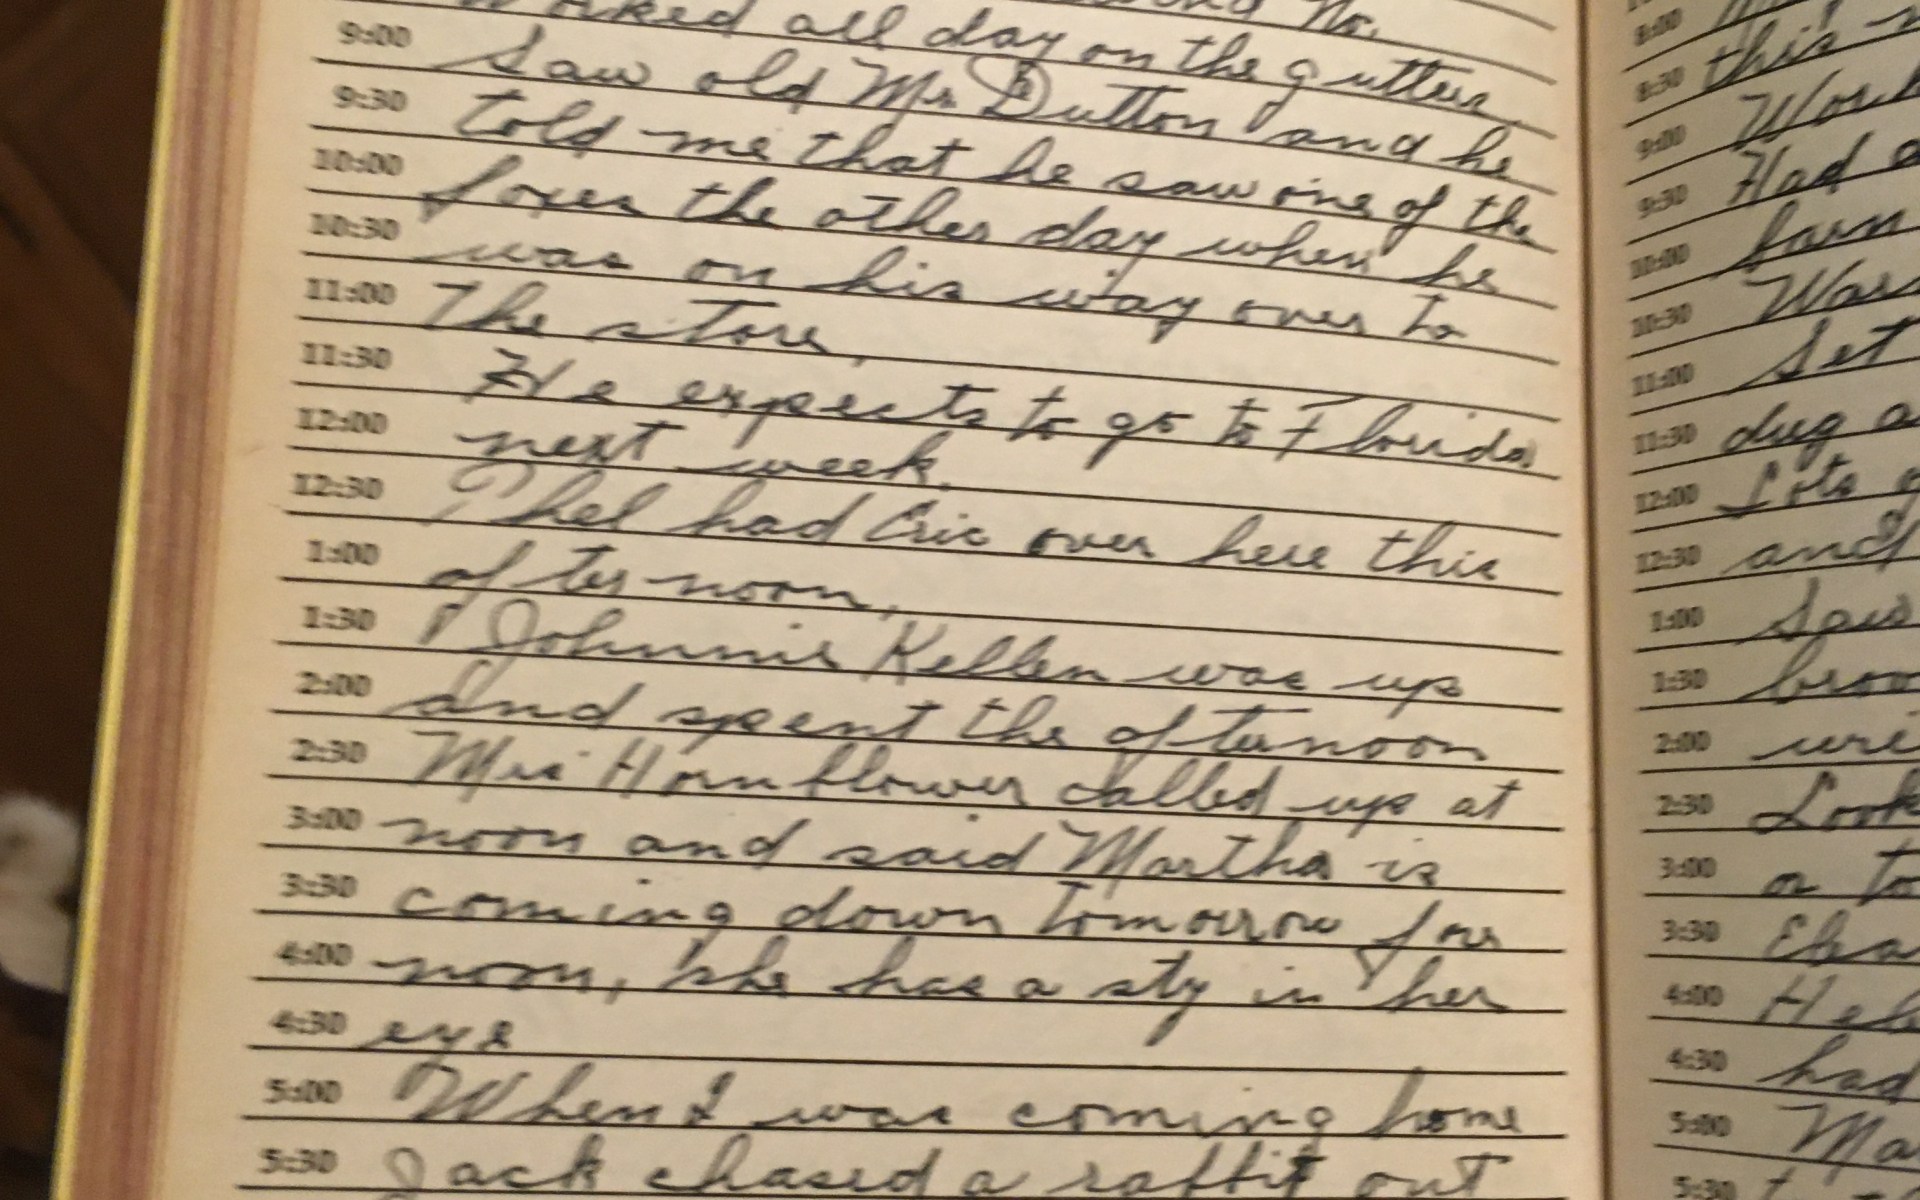 No.
Worked all day on the gutters
9:00 Saw old Mr Dutton and he
9:30 told me that he saw one of the
10:00 foxes the other day when he
10:30 was on his way over to
11:00 the store.
11:30 He expects to go to Florida
12:00 next week.
12:30 Phel had Eric over here this
1:00 afternoon.
1:30 Johnnie Kellen was up
2:00 and spent the afternoon
2:30 Mrs Hornflower called up at
3:00 noon and said Martha is
3:30 coming down tomorrow for
4:00 noon, she has a sty in her
4:30 eye
5:00 When I was coming home
5:30 Jack chased a rabbit out
8:00
8:30 this
9:00 Work
9:30 Had
10:00 farn
10:30 Was
11:00 Set
11:30 dug a
12:00 Lots
12:30 and
1:00 Saw
1:30 brow
2:00 wri
2:30 Look
3:00 or to
3:30
4:00 Hel
4:30 had
5:00 Ma
5:30